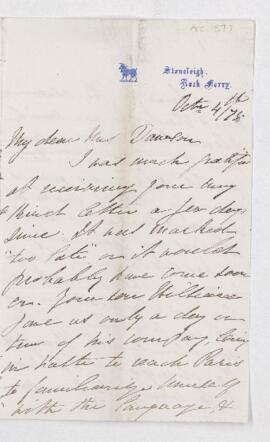 Stoneleigh,
Rock Ferry.
Octr 4th/78
My dear Mrs Dawson
I was much gratified
at receiving your very
kind letter a few days
since. It was marked
"too late" or it would
probably have come soon
er. Your son William
gave us only a day or
two of his company, being
in haste to reach Paris
to familiarize himself
with the language, &